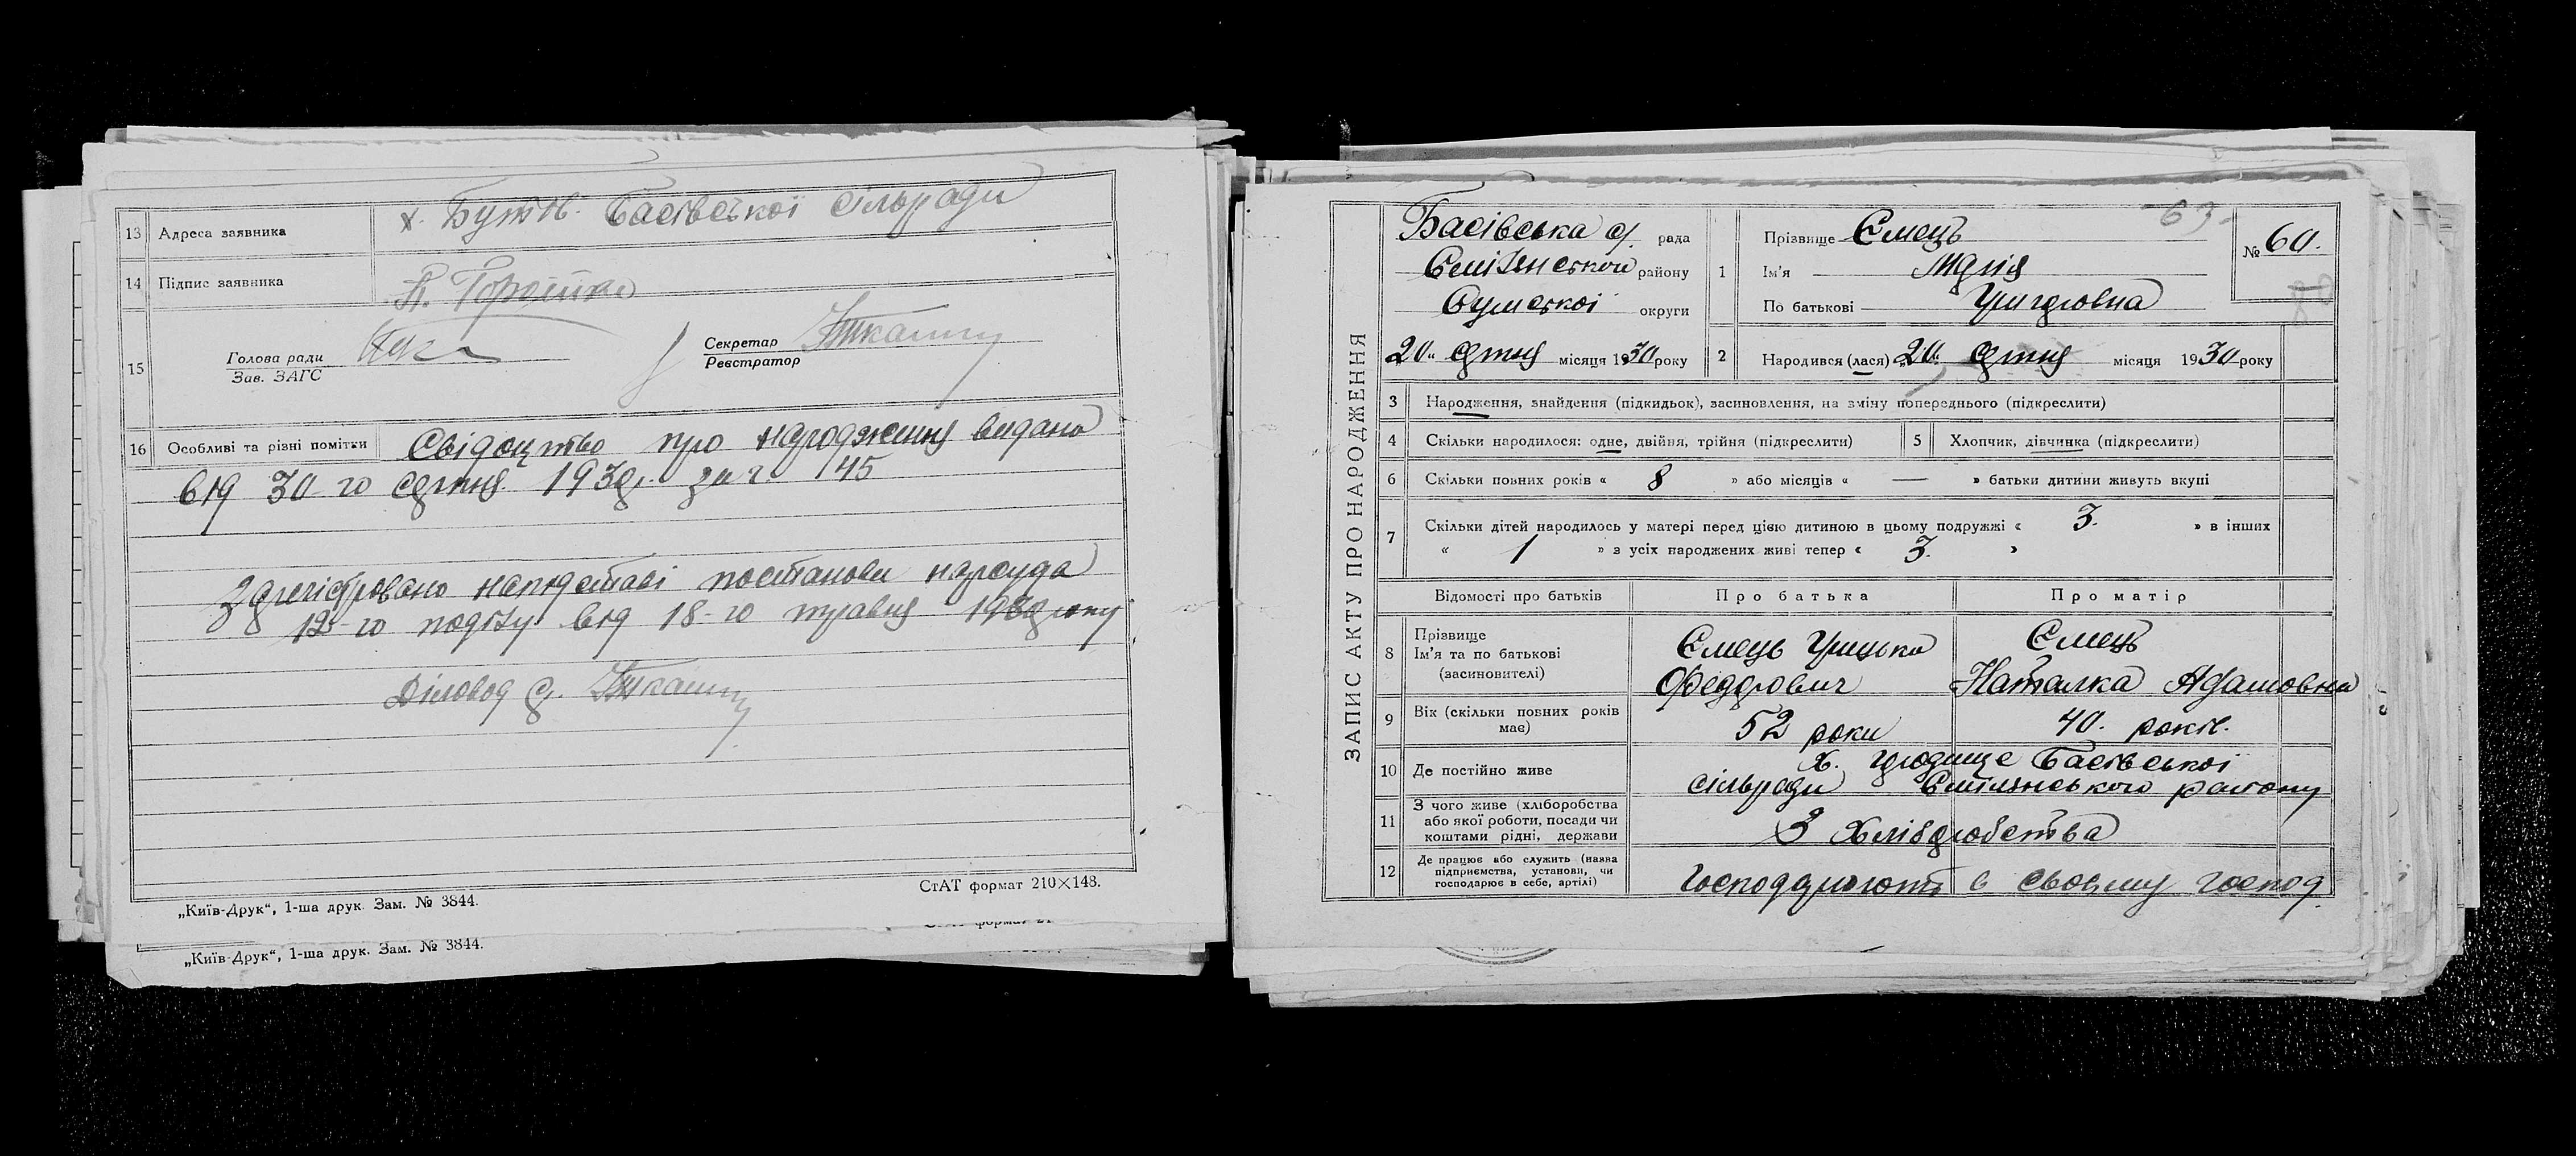 13 Адреса заявника х. Бутов. Басівської сільради
14 Підпис заявника
15 Голова ради
Зав. ЗАГС
Секретар
Реєстратор
16 Особливі та різні помітки Свідоцтво про народження видано
від 30-го січня 1930р. за ч 145
Зареєстровано на підставі постанови нарсуда
12-го поділу від 18-го травня 1930 року
Діловод
„Київ-Друк“, 1-ша друк. Зам. № 3844.
СтАТ формат 210×148.
„Київ-Друк“, 1-ша друк. Зам. № 3844.
ЗАПИС АКТУ ПРО НАРОДЖЕННЯ
Басівська с/. рада
району
Сумської округи
20. січня місяця 1930 року
63
№ 60.
1 Прізвище Ємець
Ім’я Марія
По батькові Григоровна
2 Народився (лася) 20. січня місяця 1930 року
3 Народження, знайдення (підкидьок), засиновлення, на зміну попереднього (підкреслити)
4 Скільки народилося: одне, двійня, трійня (підкреслити)
5 Хлопчик, дівчинка (підкреслити)
6 Скільки повних років « 8 » або місяців « — » батьки дитини живуть вкупі
7 Скільки дітей народилось у матері перед цією дитиною в цьому подружжі « 3. » в інших
« 1 » з усіх народжених живі тепер « 3. »
Відомості про батьків Про батька Про матір
8 Прізвище
Ім’я та по батькові
(засновителі)
Ємець Грицько
Федорович
Ємець
Наталка Адамовна
9 Вік (скільки повних років
має)
52 роки
40. років.
10 Де постійно живе
х. Городище Басівської
сільради району
11 З чого живе (хліборобства
або якої роботи, посади чи
коштами рідні, держави
З хліборобства
12 Де працює або служить (назва
підприємства, установи, чи
господарює в себе, артілі)
Господарюють в своєму господ.